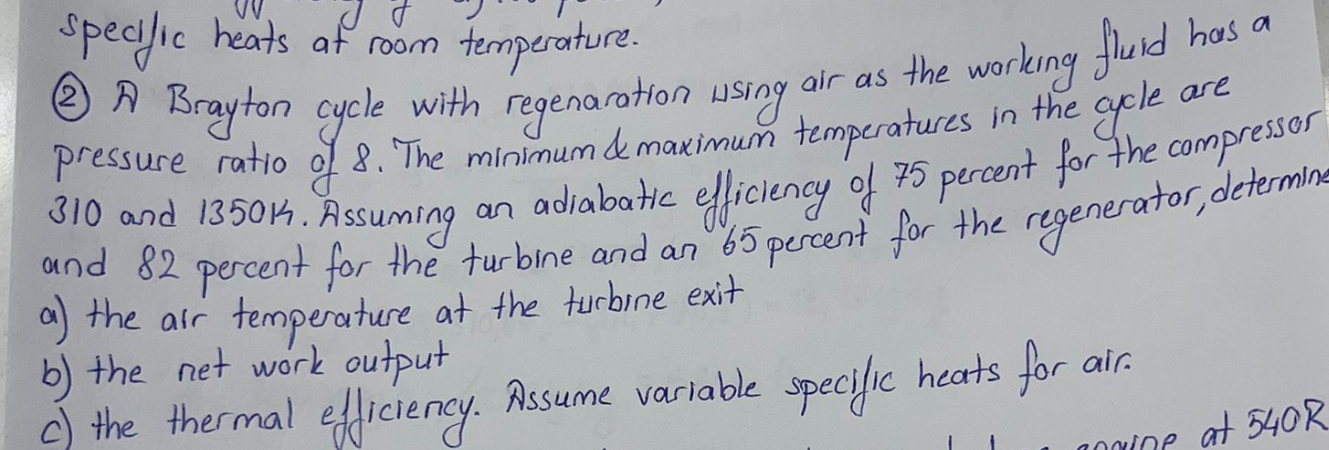 specific heats at room temperature.
② A Brayton cycle with regenaration using air as the working fluid has a
pressure ratio of 8. The minimum & maximum temperatures in the cycle are
310 and 1350K. Assuming an adiabatic efficiency of 75 percent for the compressor
and 82 percent for the turbine and an 65 percent for the regenerator, determine
a) the air temperature at the turbine exit
b) the net work output
c) the thermal efficiency. Assume variable specific heats for air.
at 540R